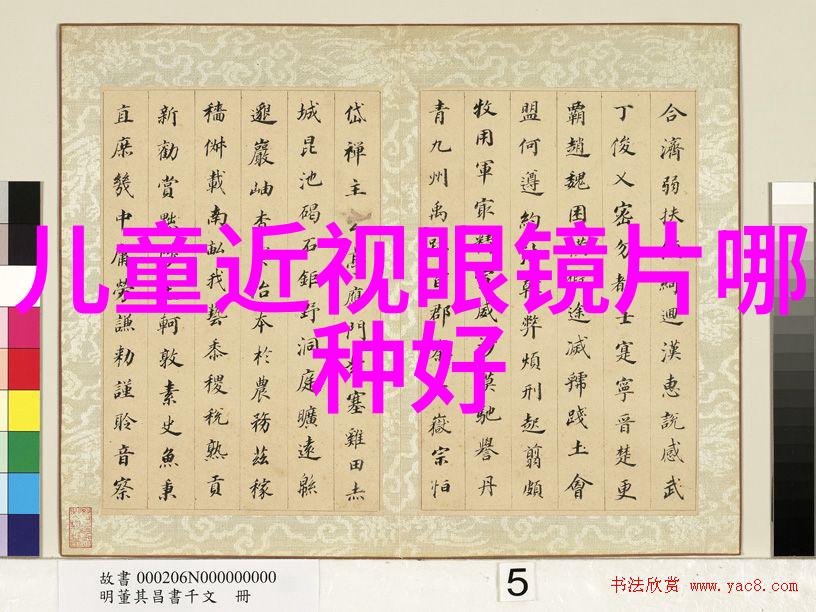 合濟弱扶迴漢惠說感武
丁俊乂密勿士寔寧晉楚更
霸趙魏困途滅虢踐土會
盟何遵約弊煩刑起翦頗
牧用軍㝡威漠馳譽丹
青九州禹郡嶽宗恒
岱禪主門塞雞田赤
城昆池碣石鉅野洞庭曠遠緜
邈巖岫杳本於農務茲稼
穡俶載南畝我藝黍稷稅熟貢
新勸賞軻敦素史魚秉
直庶幾中庸勞謙勅謹聆音察
儿童近视眼镜片哪
种好
故書 000206N000000000
明董其昌書千文 冊
5
书法欣赏 www.yac8.com